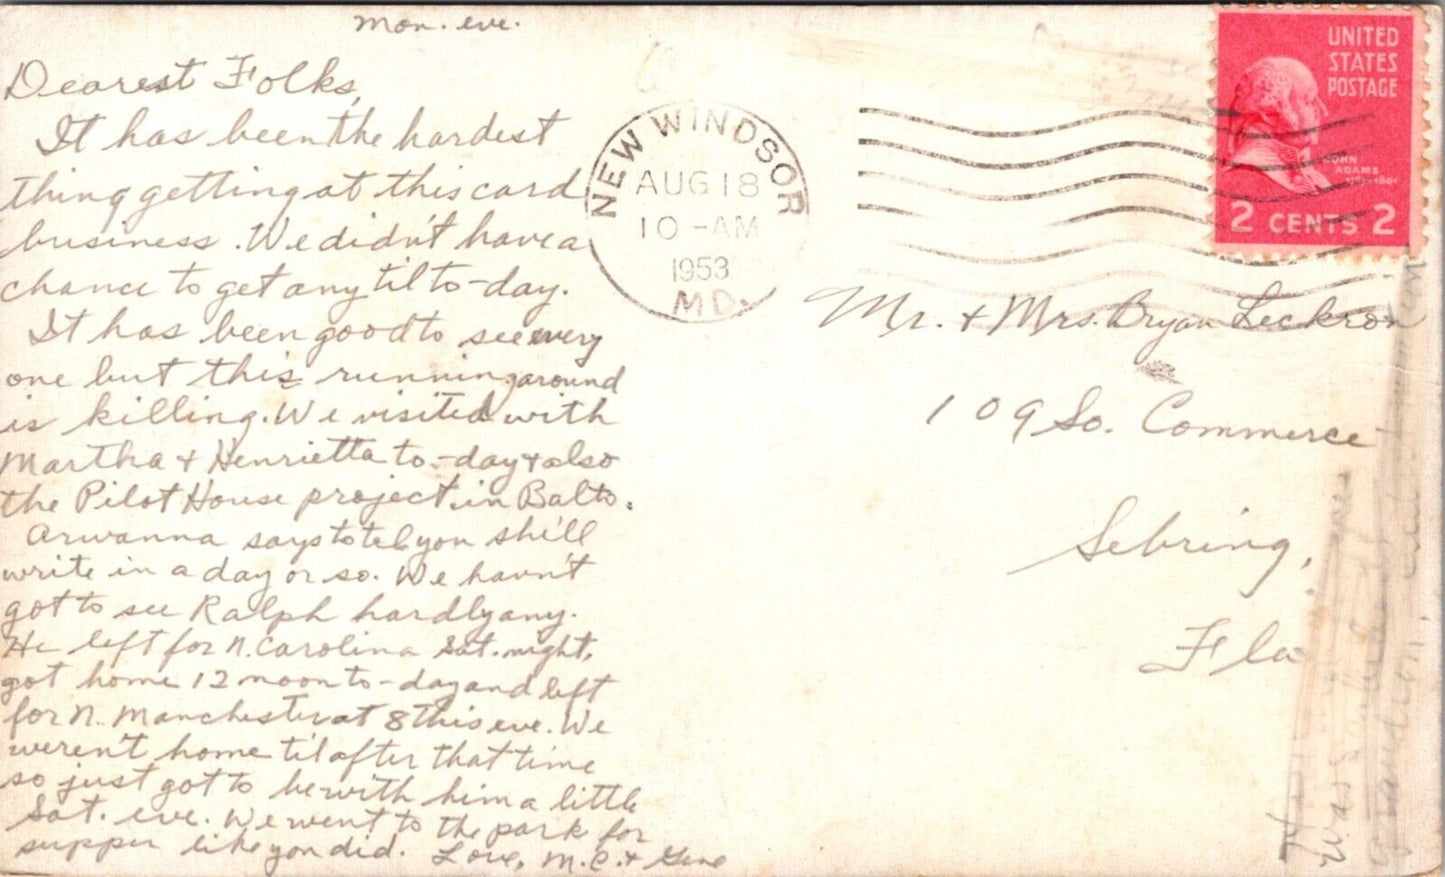 Mon. eve.
Dearest Folks,
It has been the hardest
thing getting at this card
business. We didn't have a
chance to get any til to-day.
It has been good to see every
one but this running around
is killing. We visited with
Martha + Henrietta to-day + also
the Pilot House project in Balto.
Arwanna says to tell you she'll
write in a day or so. We havn't
got to see Ralph hardly any.
He left for N. Carolina Sat. night,
got home 12 noon to-day and left
for N. Manchester at 8 this eve. We
weren't home til after that time
so just got to be with him a little
Sat. eve. We went to the park for
supper like you did. Love, M.C. + Gene
NEW WINDSOR
AUG 18
10 - AM
1953
MD.
UNITED
STATES
POSTAGE
JOHN
ADAMS
2 CENTS 2
Mr. + Mrs. Bryan Leckron
109 So. Commerce
Sebring,
Fla
was